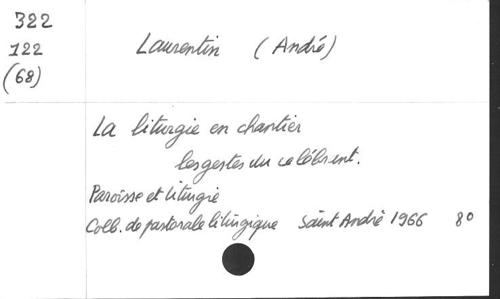 322
122
(68)
Laurentin (André)
La liturgie en chantier
les gestes du célébrent.
Paroisse et liturgie
Coll. de pastorale liturgique Saint André 1966 8º